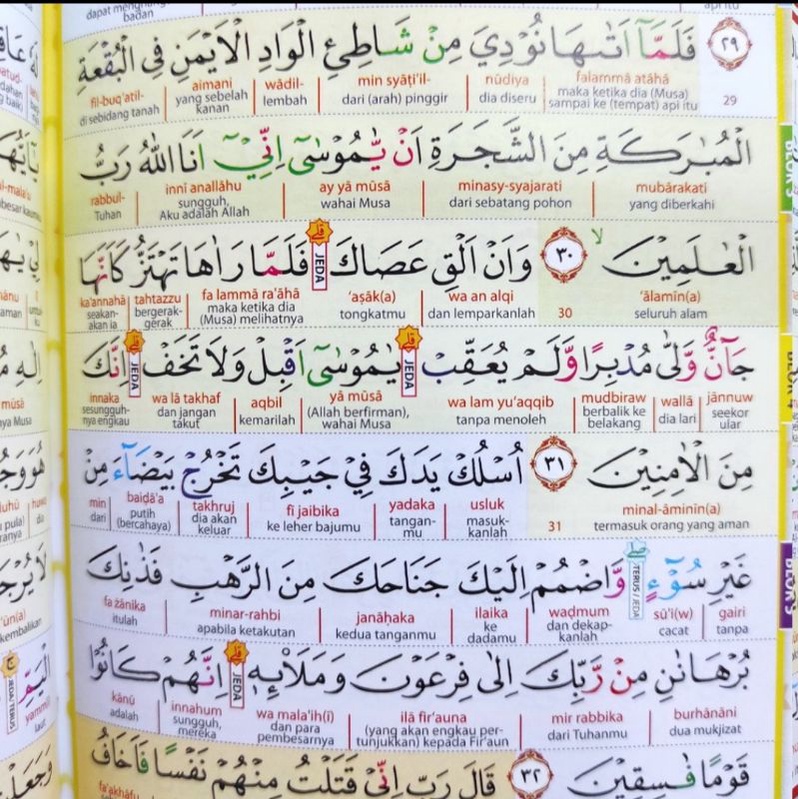 ٢٩ فَلَمَّآ اَتٰىهَا نُوْدِيَ مِنْ شَاطِئِ الْوَادِ الْاَيْمَنِ فِى الْبُقْعَةِ
29 falammā atāhā nūdiya min syāṭi'il- wādil- aimani fil-buq'atil-
maka ketika dia (Musa) sampai ke (tempat) api itu dia diseru dari (arah) pinggir lembah yang sebelah kanan di sebidang tanah
الْمُبٰرَكَةِ مِنَ الشَّجَرَةِ اَنْ يّٰمُوْسٰٓى اِنِّيْٓ اَنَا اللّٰهُ رَبُّ
mubārakati minasy-syajarati ay yā mūsā innī anallāhu rabbul-
yang diberkahi dari sebatang pohon wahai Musa sungguh, Aku adalah Allah Tuhan
الْعٰلَمِيْنَ ۙ ٣٠ وَاَنْ اَلْقِ عَصَاكَ ۗ فَلَمَّا رَاٰهَا تَهْتَزُّ كَاَنَّهَا
JEDA
'ālamīn(a) 30 wa an alqi 'aṣāk(a) fa lammā ra'āhā tahtazzu ka'annahā
seluruh alam dan lemparkanlah tongkatmu maka ketika dia (Musa) melihatnya bergerak-gerak seakan-akan ia
جَاۤنٌّ وَّلّٰى مُدْبِرًا وَّلَمْ يُعَقِّبْ ۗ يٰمُوْسٰٓى اَقْبِلْ وَلَا تَخَفْ ۗ اِنَّكَ
JEDA JEDA
jānnuw wallā mudbiraw wa lam yu'aqqib yā mūsā aqbil wa lā takhaf innaka
seekor ular dia lari berbalik ke belakang tanpa menoleh (Allah berfirman), wahai Musa kemarilah dan jangan takut sesungguh-nya engkau
مِنَ الْاٰمِنِيْنَ ٣١ اُسْلُكْ يَدَكَ فِيْ جَيْبِكَ تَخْرُجْ بَيْضَاۤءَ مِنْ
minal-āminīn(a) 31 usluk yadaka fī jaibika takhruj baiḍā'a min
termasuk orang yang aman masuk-kanlah tangan-mu ke leher bajumu dia akan keluar putih (bercahaya) dari
غَيْرِ سُوْۤءٍ ۖ وَّاضْمُمْ اِلَيْكَ جَنَاحَكَ مِنَ الرَّهْبِ فَذٰنِكَ
TERUS / JEDA
gairi sū'i(w) waḍmum ilaika janāḥaka minar-rahbi fa żānika
tanpa cacat dan dekap-kanlah ke dadamu kedua tanganmu apabila ketakutan itulah
بُرْهَانٰنِ مِنْ رَّبِّكَ اِلٰى فِرْعَوْنَ وَمَلَا۟ىِٕهٖ ۗ اِنَّهُمْ كَانُوْا
JEDA
burhānāni mir rabbika ilā fir'auna wa mala'ih(ī) innahum kānū
dua mukjizat dari Tuhanmu (yang akan engkau per-tunjukkan) kepada Fir'aun dan para pembesarnya sungguh, mereka adalah
قَوْمًا فٰسِقِيْنَ ٣٢ قَالَ رَبِّ اِنِّيْ قَتَلْتُ مِنْهُمْ نَفْسًا فَاَخَافُ
fa'akhāfu